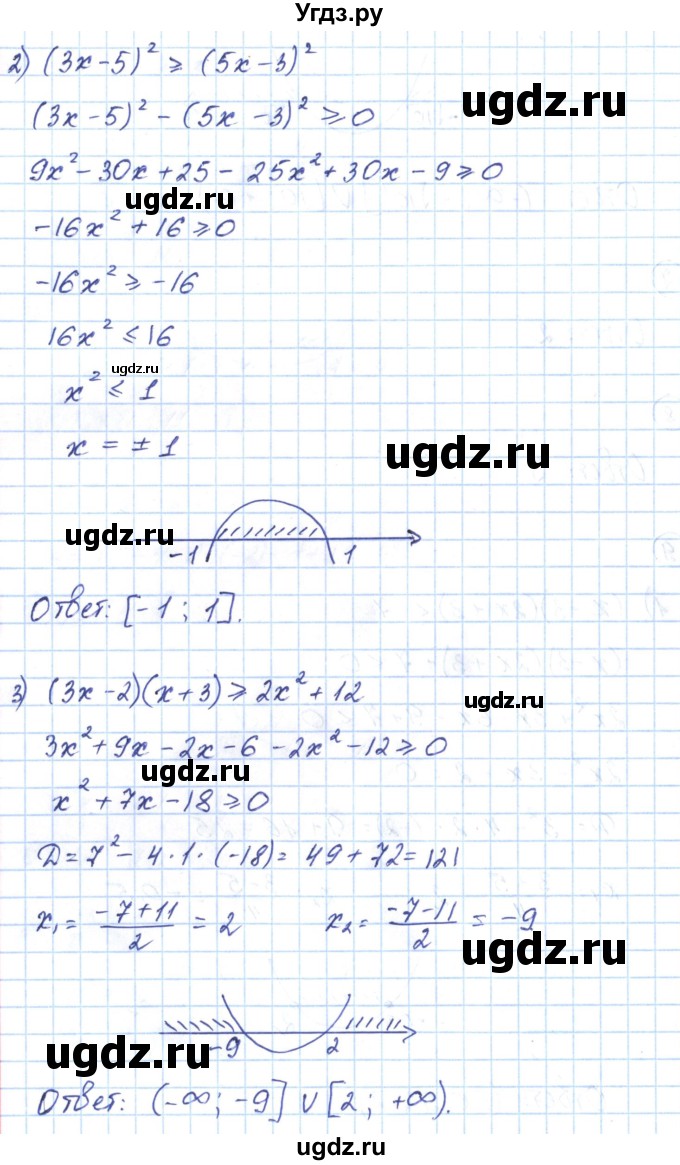 Угдз.ру
2) (3x-5)² ⩾ (5x-3)²
ugdz.ru
(3x-5)² - (5x-3)² ⩾ 0
9x² - 30x + 25 - 25x² + 30x - 9 ⩾ 0
ugdz.ru
-16x² + 16 ⩾ 0
-16x² ⩾ -16
16x² ⩽ 16
ugdz.ru
x² ⩽ 1
x = ± 1
ugdz.ru
ugdz.ru
-1 1
Ответ: [-1; 1].
3) (3x-2)(x+3) ⩾ 2x² + 12
ugdz.ru
3x² + 9x - 2x - 6 - 2x² - 12 ⩾ 0
ugdz.ru
x² + 7x - 18 ⩾ 0
Д = 7² - 4·1·(-18) = 49 + 72 = 121
x₁ = (-7+11)/2 = 2 x₂ = (-7-11)/2 = -9
ugdz.ru
ugdz.ru
-9 2
ugdz.ru
Ответ: (-∞; -9] ∪ [2; +∞).
ugdz.ru